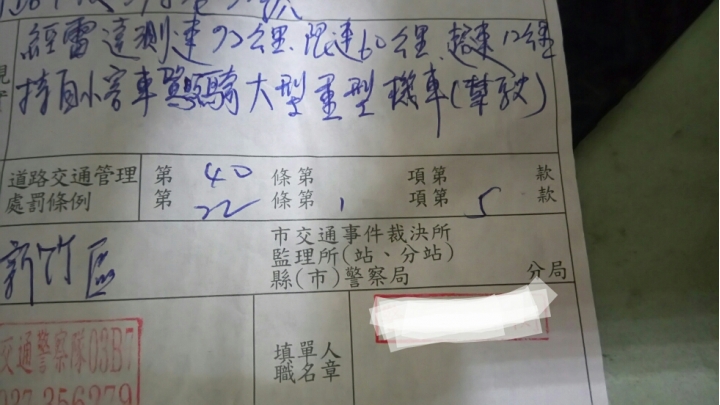 經雷達測速72公里.限速60公里.超速12公里
持自小客車駕照騎大型重型機車(警駛)
道路交通管理 第 40 條第 項第 款
處罰條例 第 22 條第 1 項第 5 款
新竹區
市交通事件裁決所
監理所(站、分站)
縣(市)警察局 分局
交通警察隊03B7
037 356279
填單人
職名章